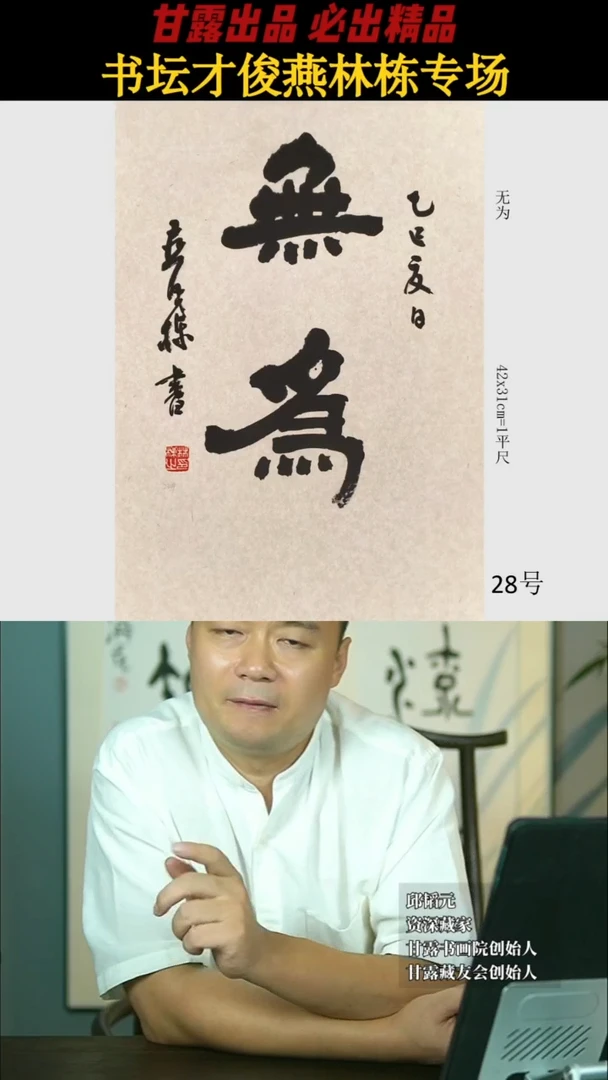 甘露出品 必出精品
书坛才俊燕林栋专场
無為
乙巳夏日
燕林栋書
无为
42x31cm=1平尺
28号
邱韬元
资深藏家
甘露书画院创始人
甘露藏友会创始人